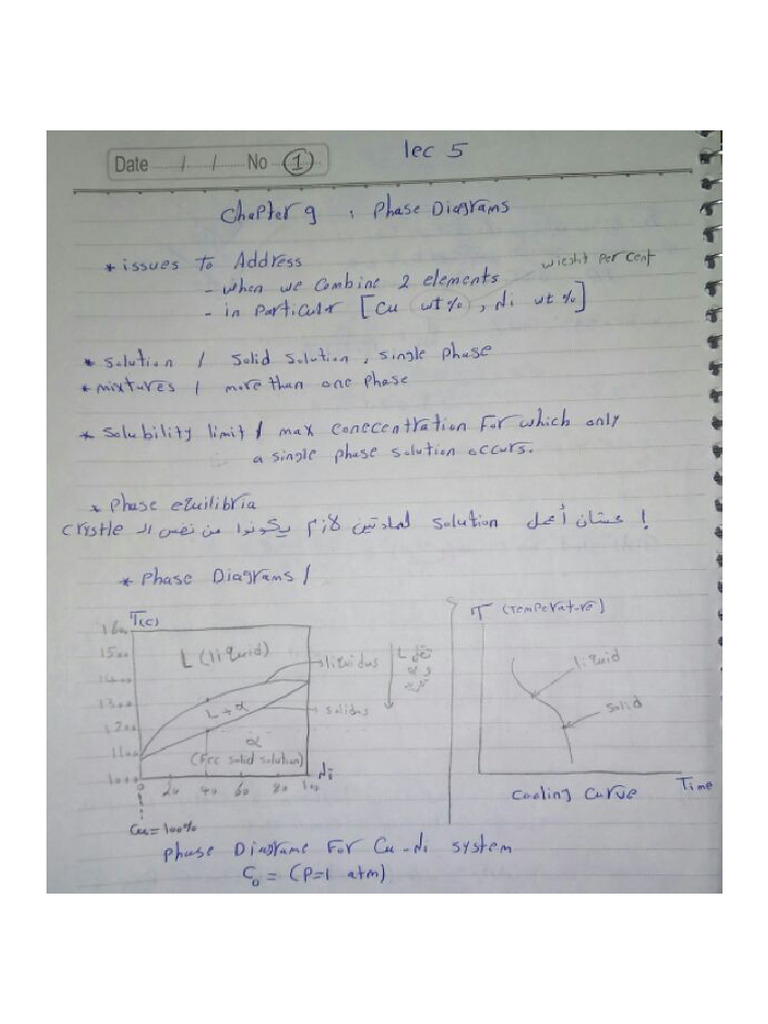 lec 5
Date / / No 1
Chapter 9 : Phase Diagrams
* issues To Address
wieght Per cent
- when we combine 2 elements
- in Particular [Cu wt%, Ni wt%]
* solution / solid solution, single phase
* mixtures / more than one phase
* solubility limit / max conccentration for which only
a single phase solution occurs.
* Phase equilibria
! عشان أعمل solution لمادتين لازم يكونوا من نفس الـ crystle
* Phase Diagrams /
T(c)
1600
1500
1400
1300
1200
1100
1000
L (liquid)
liquidus
L + α
solidus
α
(Fcc solid solution)
Ni
0 20 40 60 80 100
Cu = 100%
L
α
T (Temperature)
liquid
solid
Time
Cooling Curve
Phase Diagrame For Cu-Ni system
C₀ = (P=1 atm)